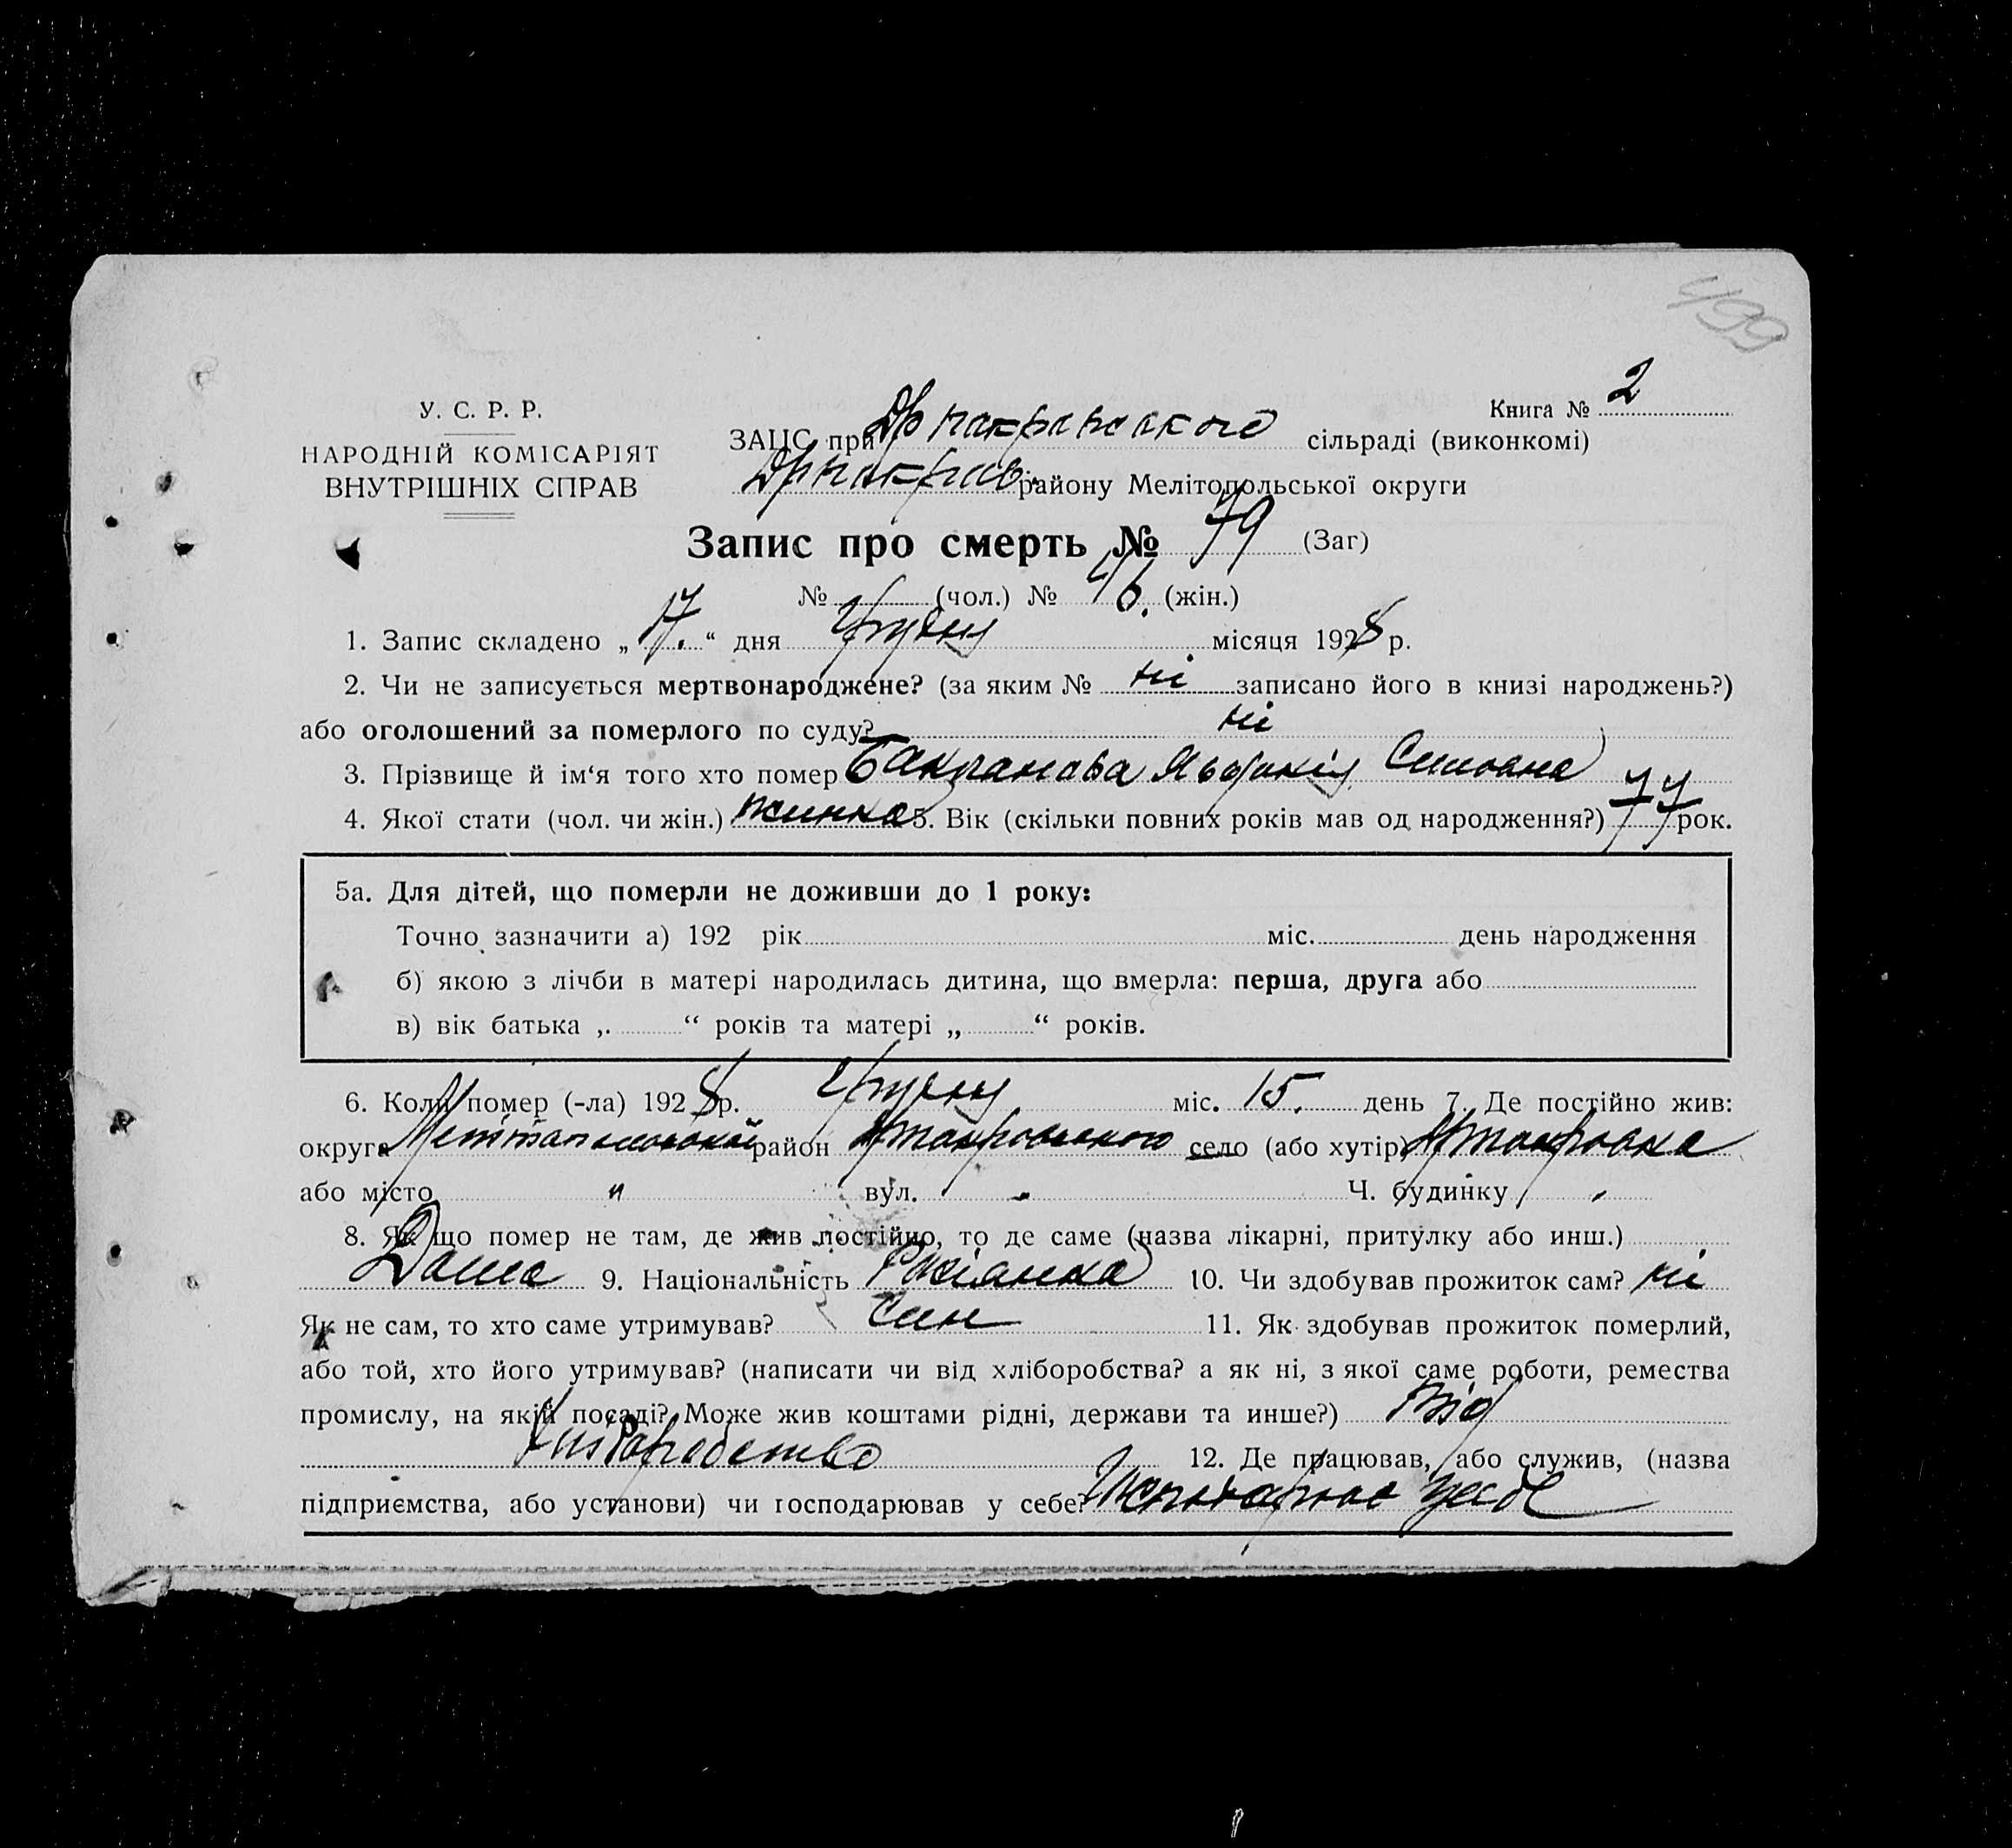 499
Книга № 2
У. С. Р. Р.
НАРОДНІЙ КОМІСАРІЯТ
ВНУТРІШНІХ СПРАВ
ЗАЦС при сільраді (виконкомі)
району Мелітопольської округи
Запис про смерть № 79 (Заг)
№ (чол.) № 46. (жін.)
1. Запис складено „17.“ дня Грудня місяця 1928 р.
2. Чи не записується мертвонароджене? (за яким № ні записано його в книзі народжень?)
або оголошений за померлого по суду? ні
3. Прізвище й ім‘я того хто помер
4. Якої стати (чол. чи жін.) жинка 5. Вік (скільки повних років мав од народження?) 77 рок.
5а. Для дітей, що померли не доживши до 1 року:
Точно зазначити а) 192 рік міс. день народження
б) якою з лічби в матері народилась дитина, що вмерла: перша, друга або
в) вік батька „ “ років та матері „ “ років.
6. Коли помер (-ла) 1928 р. Грудня міс. 15. день 7. Де постійно жив:
округа район село (або хутір)
або місто " вул. Ч. будинку
8. Якщо помер не там, де жив постійно, то де саме (назва лікарні, притулку або инш.)
Дома 9. Національність 10. Чи здобував прожиток сам? ні
Як не сам, то хто саме утримував? Син 11. Як здобував прожиток померлий,
або той, хто його утримував? (написати чи від хліборобства? а як ні, з якої саме роботи, ремества
промислу, на якій посаді? Може жив коштами рідні, держави та инше?) Від
12. Де працював, або служив, (назва
підприємства, або установи) чи господарював у себе?